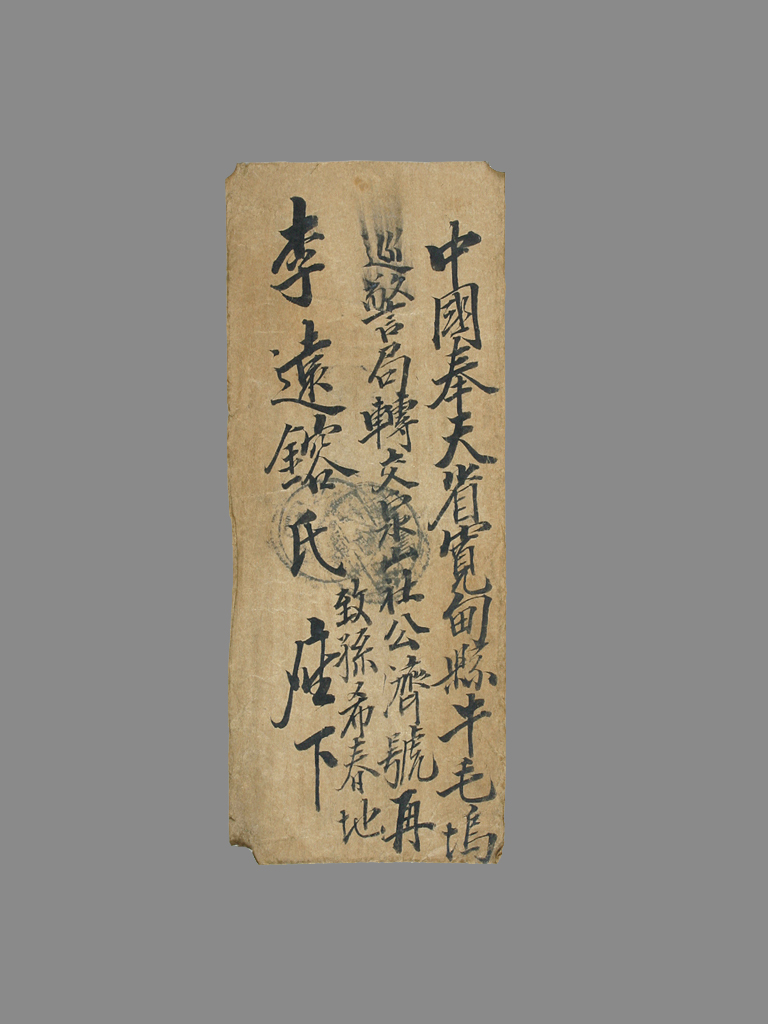 中國奉天省寬甸縣牛毛塢
巡警局轉交泉山社公濟號再
致孫希春地
李遠鎔氏 座下